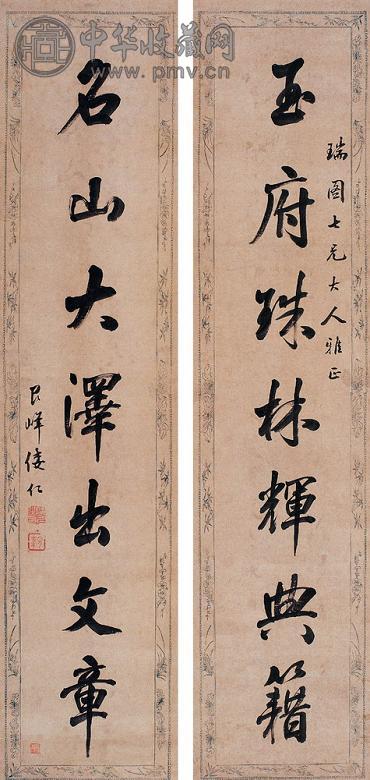 中华收藏网
www.pmv.cn
玉府珠林輝典籍
瑞圖七兄大人雅正
名山大澤出文章
艮峰倭仁